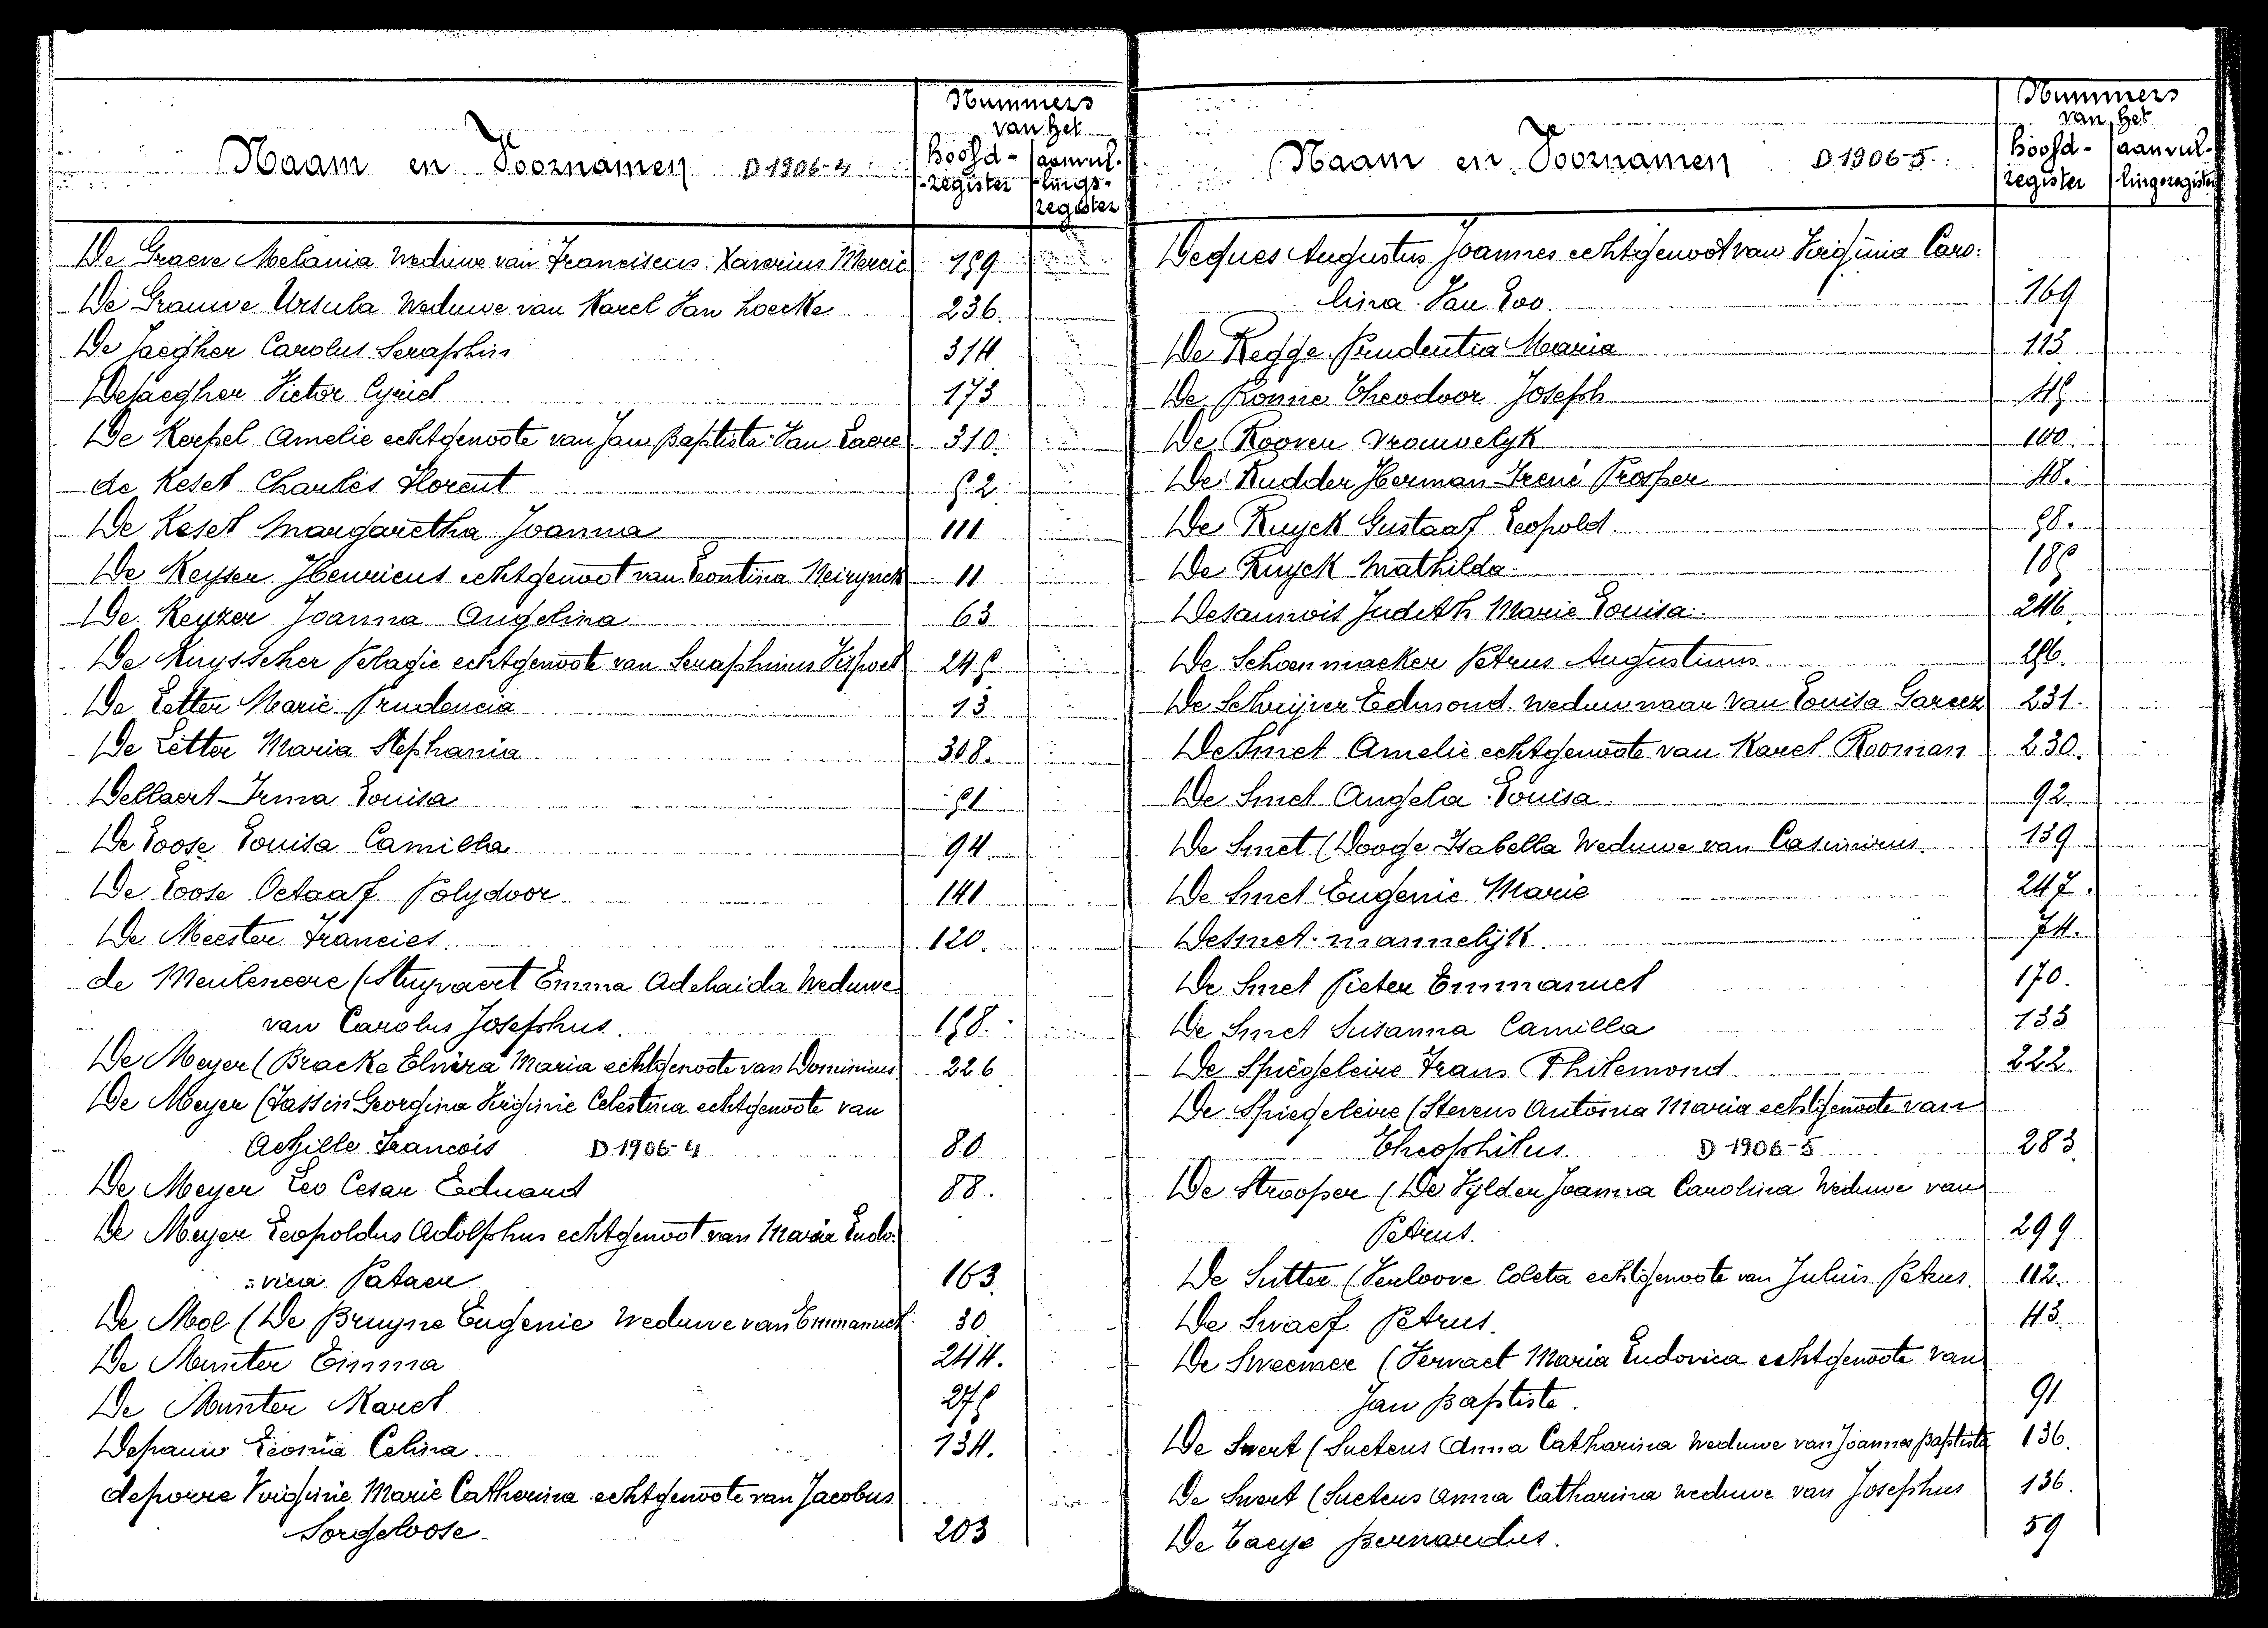 Naam en Voornamen D 1906-4
Nummers
van het
hoofd-
register
aanvul-
lings-
register
De Graeve Melania weduwe van Franciscus Xaverius Mercie 189
De Grauwe Ursula Weduwe van Karel Van Loocke 236.
De Jaegher Carolus Seraphin 314
Dejaegher Victor Cyriel 173
De Koepel Amelie echtgenoote van Jan Baptiste Van Laere 310.
de Kesel Charles Florent 52
De Kesel Margaretha Joanna 111
De Keyser Henricus echtgenoot van Leontina Neirynck 11
De Keyzer Joanna Angelina 63
De Kuysscher Pelagie echtgenoote van Seraphinus Vispoel 245
De Letter Marie Prudencia 13
De Letter Maria Stephania 308.
Dellaert Irma Louisa 51
De Loose Louisa Camilla 94.
De Loose Octaaf Polydoor 141
De Meester Francies 120.
de Meulencere (Stuyvaert Emma Adelaida Weduwe
van Carolus Josephus. 158.
De Meyer (Bracke Elvira Maria echtgenoote van Dominicus 226
De Meyer (Tassin Georgina Virginie Celestina echtgenoote van
Achille Francois D 1906-4 80
De Meyer Leo Cesar Eduard 88.
De Meyer Leopoldus Adolphus echtgenoot van Maria Ludo-
-vica Pataer 163.
De Mol (De Bruyne Eugenie Weduwe van Emmanuel 30
De Munter Emma 244.
De Munter Karel 275
Depauw Leonia Celina. 134.
deporre Virginie Marie Catherina echtgenoote van Jacobus
Sorgeloose 203
Naam en Voornamen D 1906-5.
Nummers
van het
hoofd-
register
aanvul-
lingsregister
Deques Augustus Joannes echtgenoot van Virginia Caro-
lina Van Loo. 169
De Regge Prudentia Maria 113
De Ronne Theodoor Joseph 45
De Rooren vrouwelyk 100.
De Rudder Herman Irené Prosper 48.
De Ruyck Gustaaf Leopold. 58.
De Ruyck Mathilda 185
Desaunois Judith Marie Louisa 246.
De Schoenmacker Petrus Augustinus 256.
De Schrijver Edmond weduwnaar van Louisa Garcez 231.
De Smet Amelie echtgenoote van Karel Rooman 230.
De Smet Angela Louisa 92.
De Smet (Dooge Isabella Weduwe van Casimirus. 139
De Smet Eugenie Marie 247.
Desmet mannelijk 74.
De Smet Pieter Emmanuel 170.
De Smet Susanna Camilla 133
De Spiegeleire Frans Philemond. 222.
De Spiegeleire (Stevens Antonia Maria echtgenoote van
Theophilus. D 1906-5 283
De Strooper (De Vylder Joanna Carolina Weduwe van
Petrus. 299
De Sutter (Verloove Coleta echtgenoote van Julius Petrus. 112.
De Swaef Petrus. 43.
De Sweemer (Vervaet Maria Ludovica echtgenoote van
Jan Baptiste. 91
De Swert (Suetens Anna Catharina Weduwe van Joannes Baptista 136.
De Swert (Suetens Anna Catharina weduwe van Josephus 136.
De Taeye Bernardus. 59